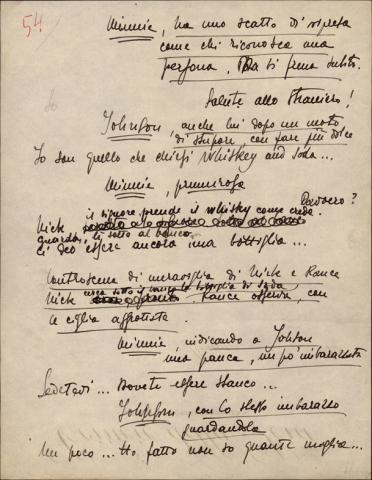 54
Minnie, ha uno scatto di sorpresa
come chi riconosca una
persona, Ma si frena subito.
Salute allo straniero!
Io
Johnson, anche lui dopo un moto
di stupore con fare più dolce
Io son quello che chiesi Whiskey and soda...
Minnie, premurosa
Davvero?
Nick il signore prende il whisky come crede.
guardai, lì sotto al banco.
ci deo essere ancora una bottiglia...
Controscena di meraviglia di Nick e Rance
Nick cerca sotto il banco la bottiglia di soda
Rance osserva, con
le ciglia aggrottate.
Minnie, indicando a Johnson
una panca, un po' imbarazzata
Sedetevi... Dovete essere stanco...
Johnson, con lo stesso imbarazzo
guardandola
Un poco... Ho fatto non so quante miglia...